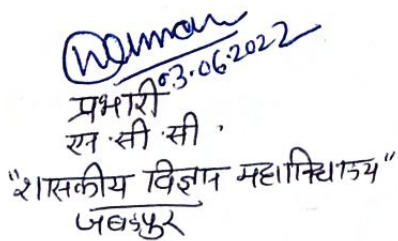 03.06.2022
प्रभारी
एन.सी.सी.
"शासकीय विज्ञान महाविद्यालय"
जबलपुर